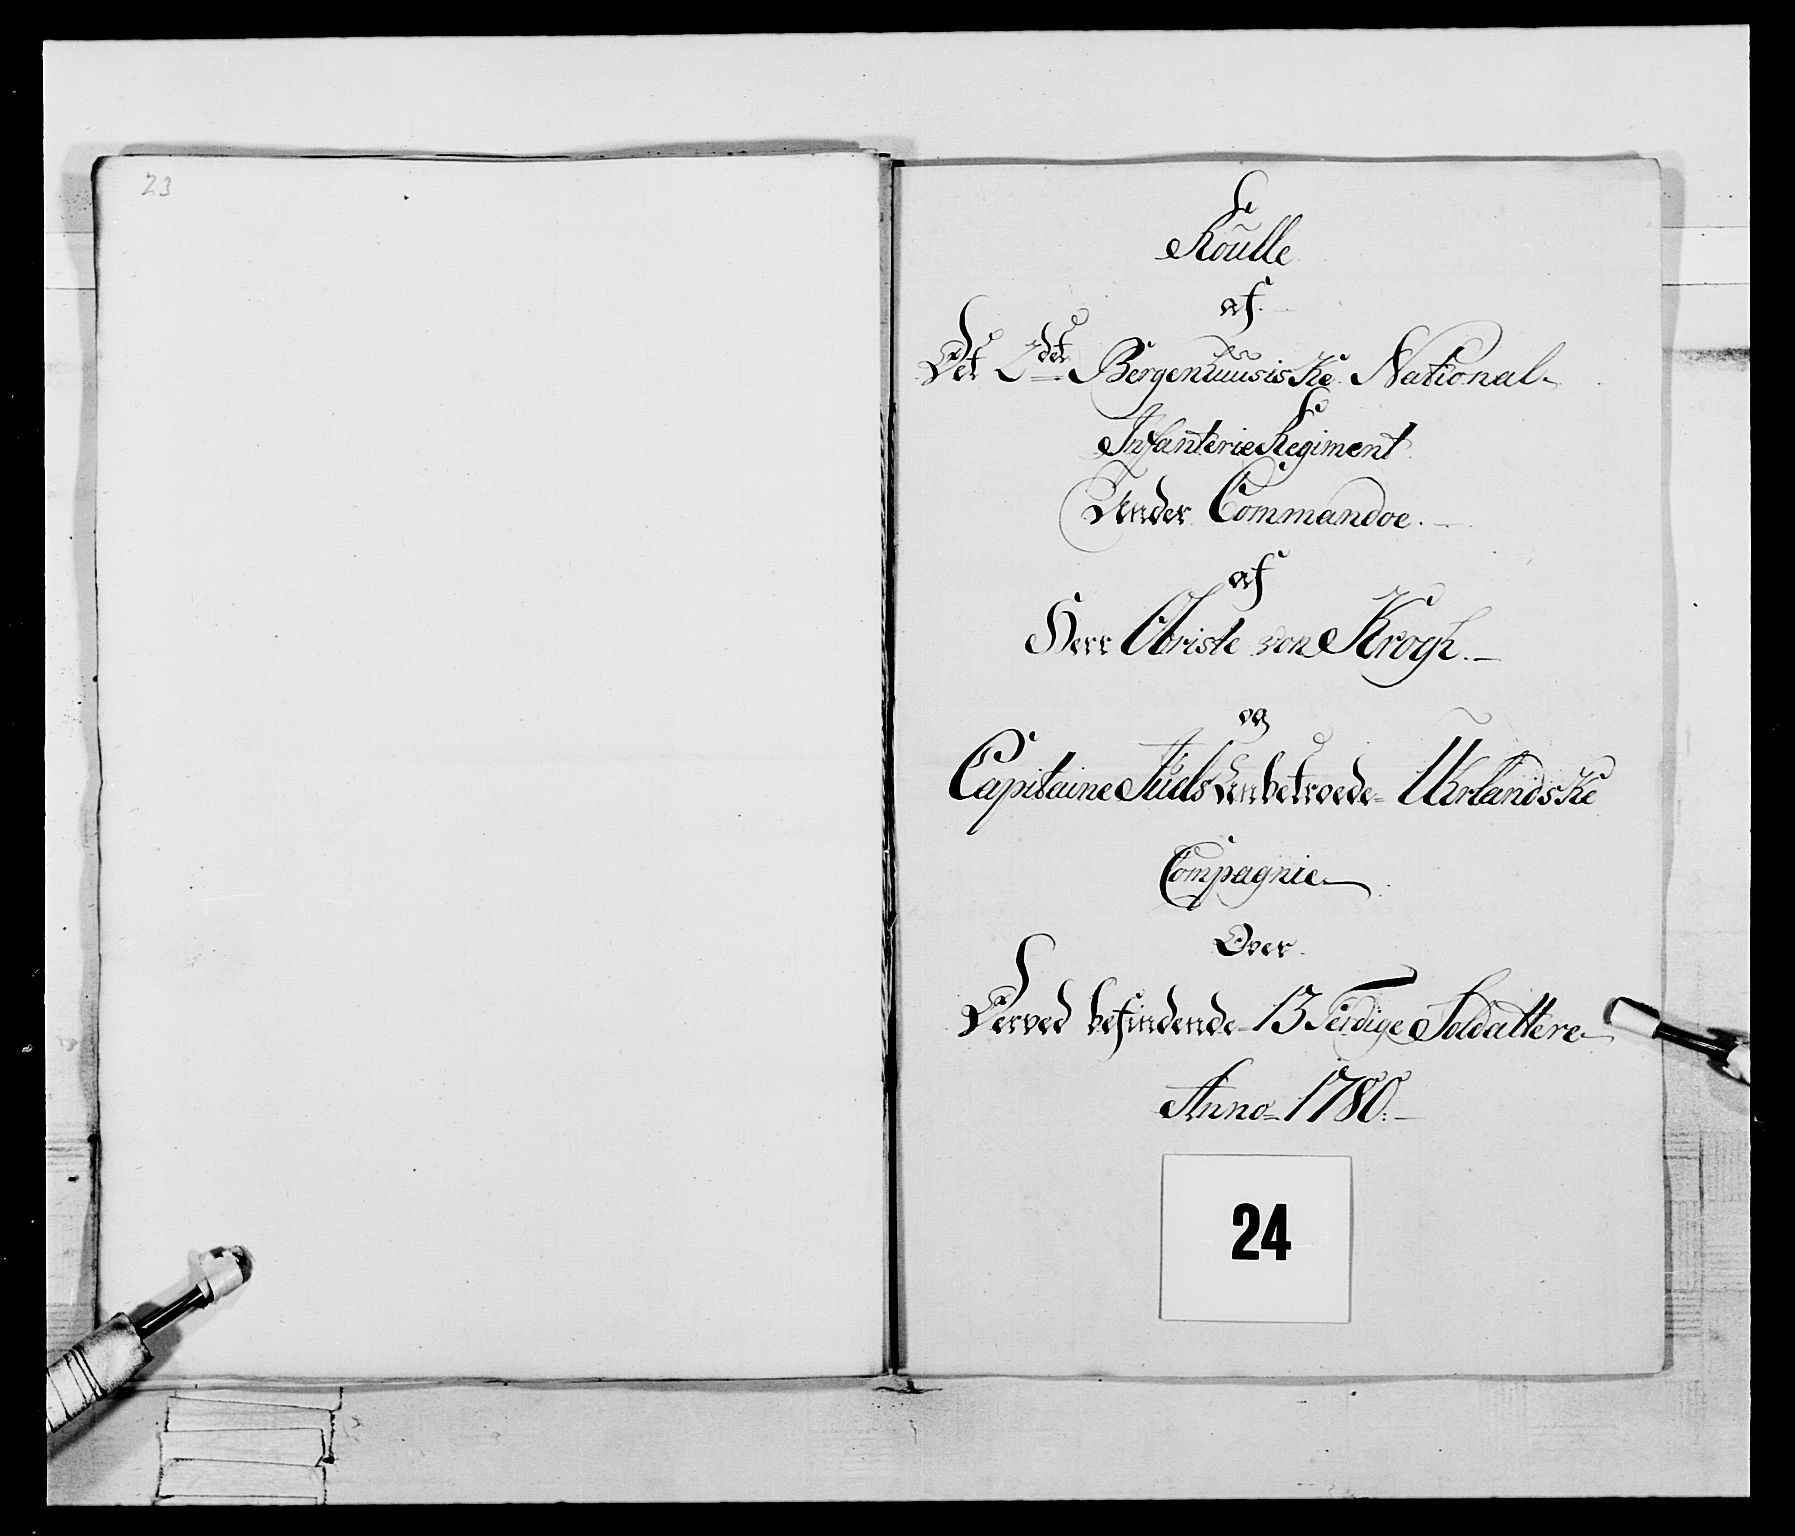 23
Roulle
af
Det 2det Bergenhuusiske National
Infanterie Regiment
Under Commandoe.
af
Herr Obriste von Krogh.
og
Capitaine Juels Anbetroede Uhrlandske
Compagnie
Over
Derved befindende 13 Ferdige Soldattere
Anno 1780.
24